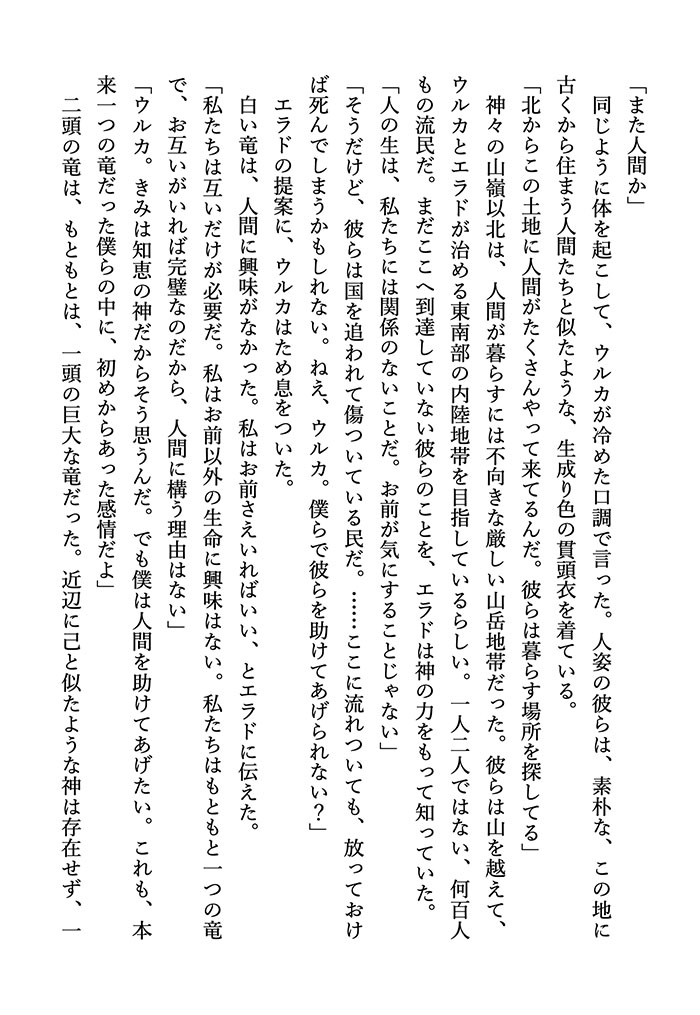 「また人間か」
　同じように体を起こして、ウルカが冷めた口調で言った。人姿の彼らは、素朴な、この地に
古くから住まう人間たちと似たような、生成り色の貫頭衣を着ている。
「北からこの土地に人間がたくさんやって来てるんだ。彼らは暮らす場所を探してる」
　神々の山嶺以北は、人間が暮らすには不向きな厳しい山岳地帯だった。彼らは山を越えて、
ウルカとエラドが治める東南部の内陸地帯を目指しているらしい。一人二人ではない、何百人
もの流民だ。まだここへ到達していない彼らのことを、エラドは神の力をもって知っていた。
「人の生は、私たちには関係のないことだ。お前が気にすることじゃない」
「そうだけど、彼らは国を追われて傷ついている民だ。……ここに流れついても、放っておけ
ば死んでしまうかもしれない。ねえ、ウルカ。僕らで彼らを助けてあげられない？」
　エラドの提案に、ウルカはため息をついた。
　白い竜は、人間に興味がなかった。私はお前さえいればいい、とエラドに伝えた。
「私たちは互いだけが必要だ。私はお前以外の生命に興味はない。私たちはもともと一つの竜
で、お互いがいれば完璧なのだから、人間に構う理由はない」
「ウルカ。きみは知恵の神だからそう思うんだ。でも僕は人間を助けてあげたい。これも、本
来一つの竜だった僕らの中に、初めからあった感情だよ」
　二頭の竜は、もともとは、一頭の巨大な竜だった。近辺に己と似たような神は存在せず、一